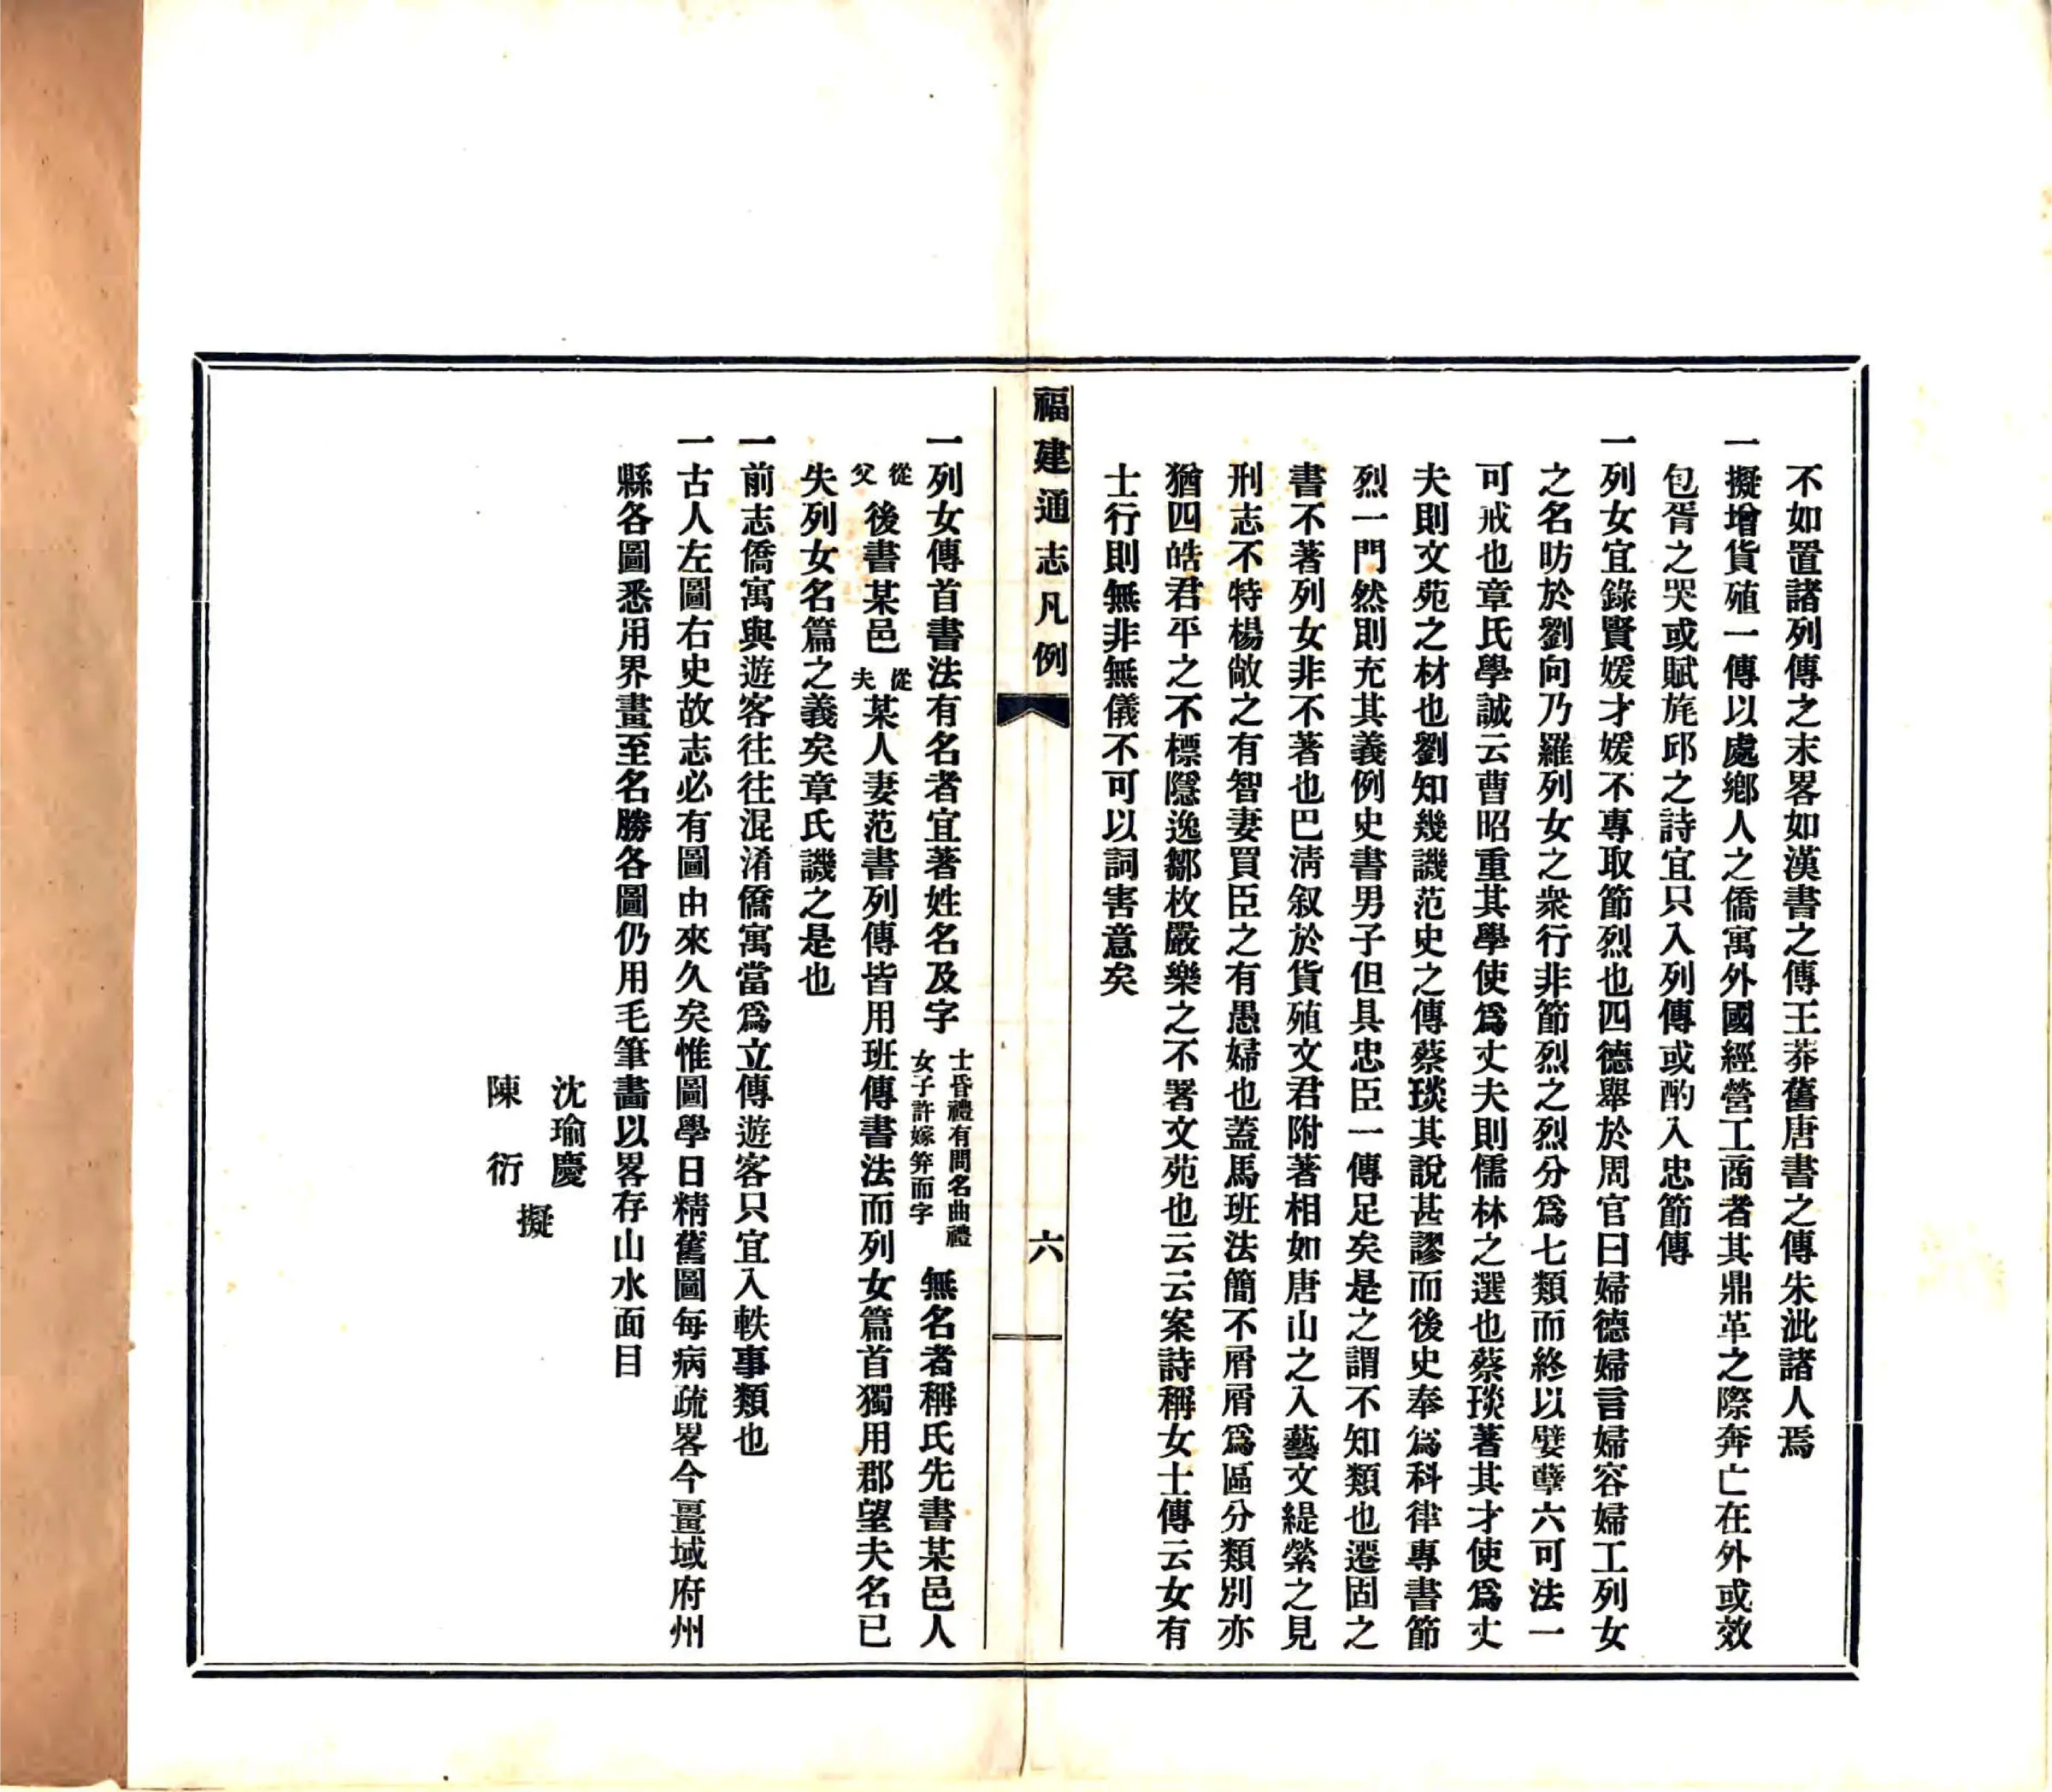 不如置諸列傳之末畧如漢書之傳王莽舊唐書之傳朱泚諸人焉
一擬增貨殖一傳以處鄉人之僑寓外國經營工商者其鼎革之際奔亡在外或效
包胥之哭或賦旄邱之詩宜只入列傳或酌入忠節傳
一列女宜錄賢媛才媛不專取節烈也四德舉於周官曰婦德婦言婦容婦工列女
之名昉於劉向乃羅列女之衆行非節烈之烈分爲七類而終以嬖孽六可法一
可戒也章氏學誠云曹昭重其學使爲丈夫則儒林之選也蔡琰著其才使爲丈
夫則文苑之材也劉知幾譏范史之傳蔡琰其說甚謬而後史奉爲科律專書節
烈一門然則充其義例史書男子但具忠臣一傳足矣是之謂不知類也遷固之
書不著列女非不著也巴淸叙於貨殖文君附著相如唐山之入藝文緹縈之見
刑志不特楊敞之有智妻買臣之有愚婦也蓋馬班法簡不屑屑爲區分類別亦
猶四皓君平之不標隱逸鄒枚嚴樂之不署文苑也云云案詩稱女士傳云女有
士行則無非無儀不可以詞害意矣
福建通志凡例
六
一列女傳首書法有名者宜著姓名及字士昏禮有問名曲禮女子許嫁笄而字無名者稱氏先書某邑人
從父後書某邑從夫某人妻范書列傳皆用班傳書法而列女篇首獨用郡望夫名已
失列女名篇之義矣章氏譏之是也
一前志僑寓與遊客往往混淆僑寓當爲立傳遊客只宜入軼事類也
一古人左圖右史故志必有圖由來久矣惟圖學日精舊圖每病疏畧今畺域府州
縣各圖悉用界畫至名勝各圖仍用毛筆畵以畧存山水面目
沈瑜慶
陳衍
擬